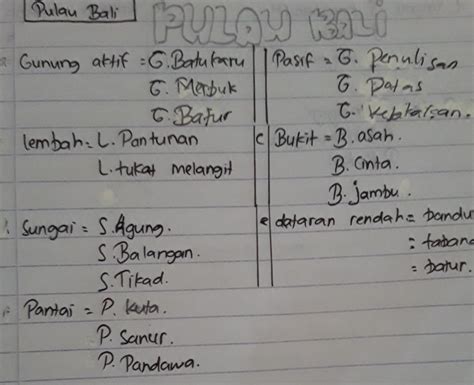 Pulau Bali
PULAU BALI
Gunung aktif = G. Batukaru
G. Merbuk
G. Batur
Pasif = G. Penulisan
G. Patas
lembah = L. Pantunan
L. tukat melangit
c Bukit = B. asah.
B. Cinta.
B. Jambu.
Sungai = S. Agung.
S. Balangan.
S. Tikad.
e dataran rendah = bandu
= taban
= batur.
Pantai = P. Kuta.
P. Sanur.
P. Pandawa.